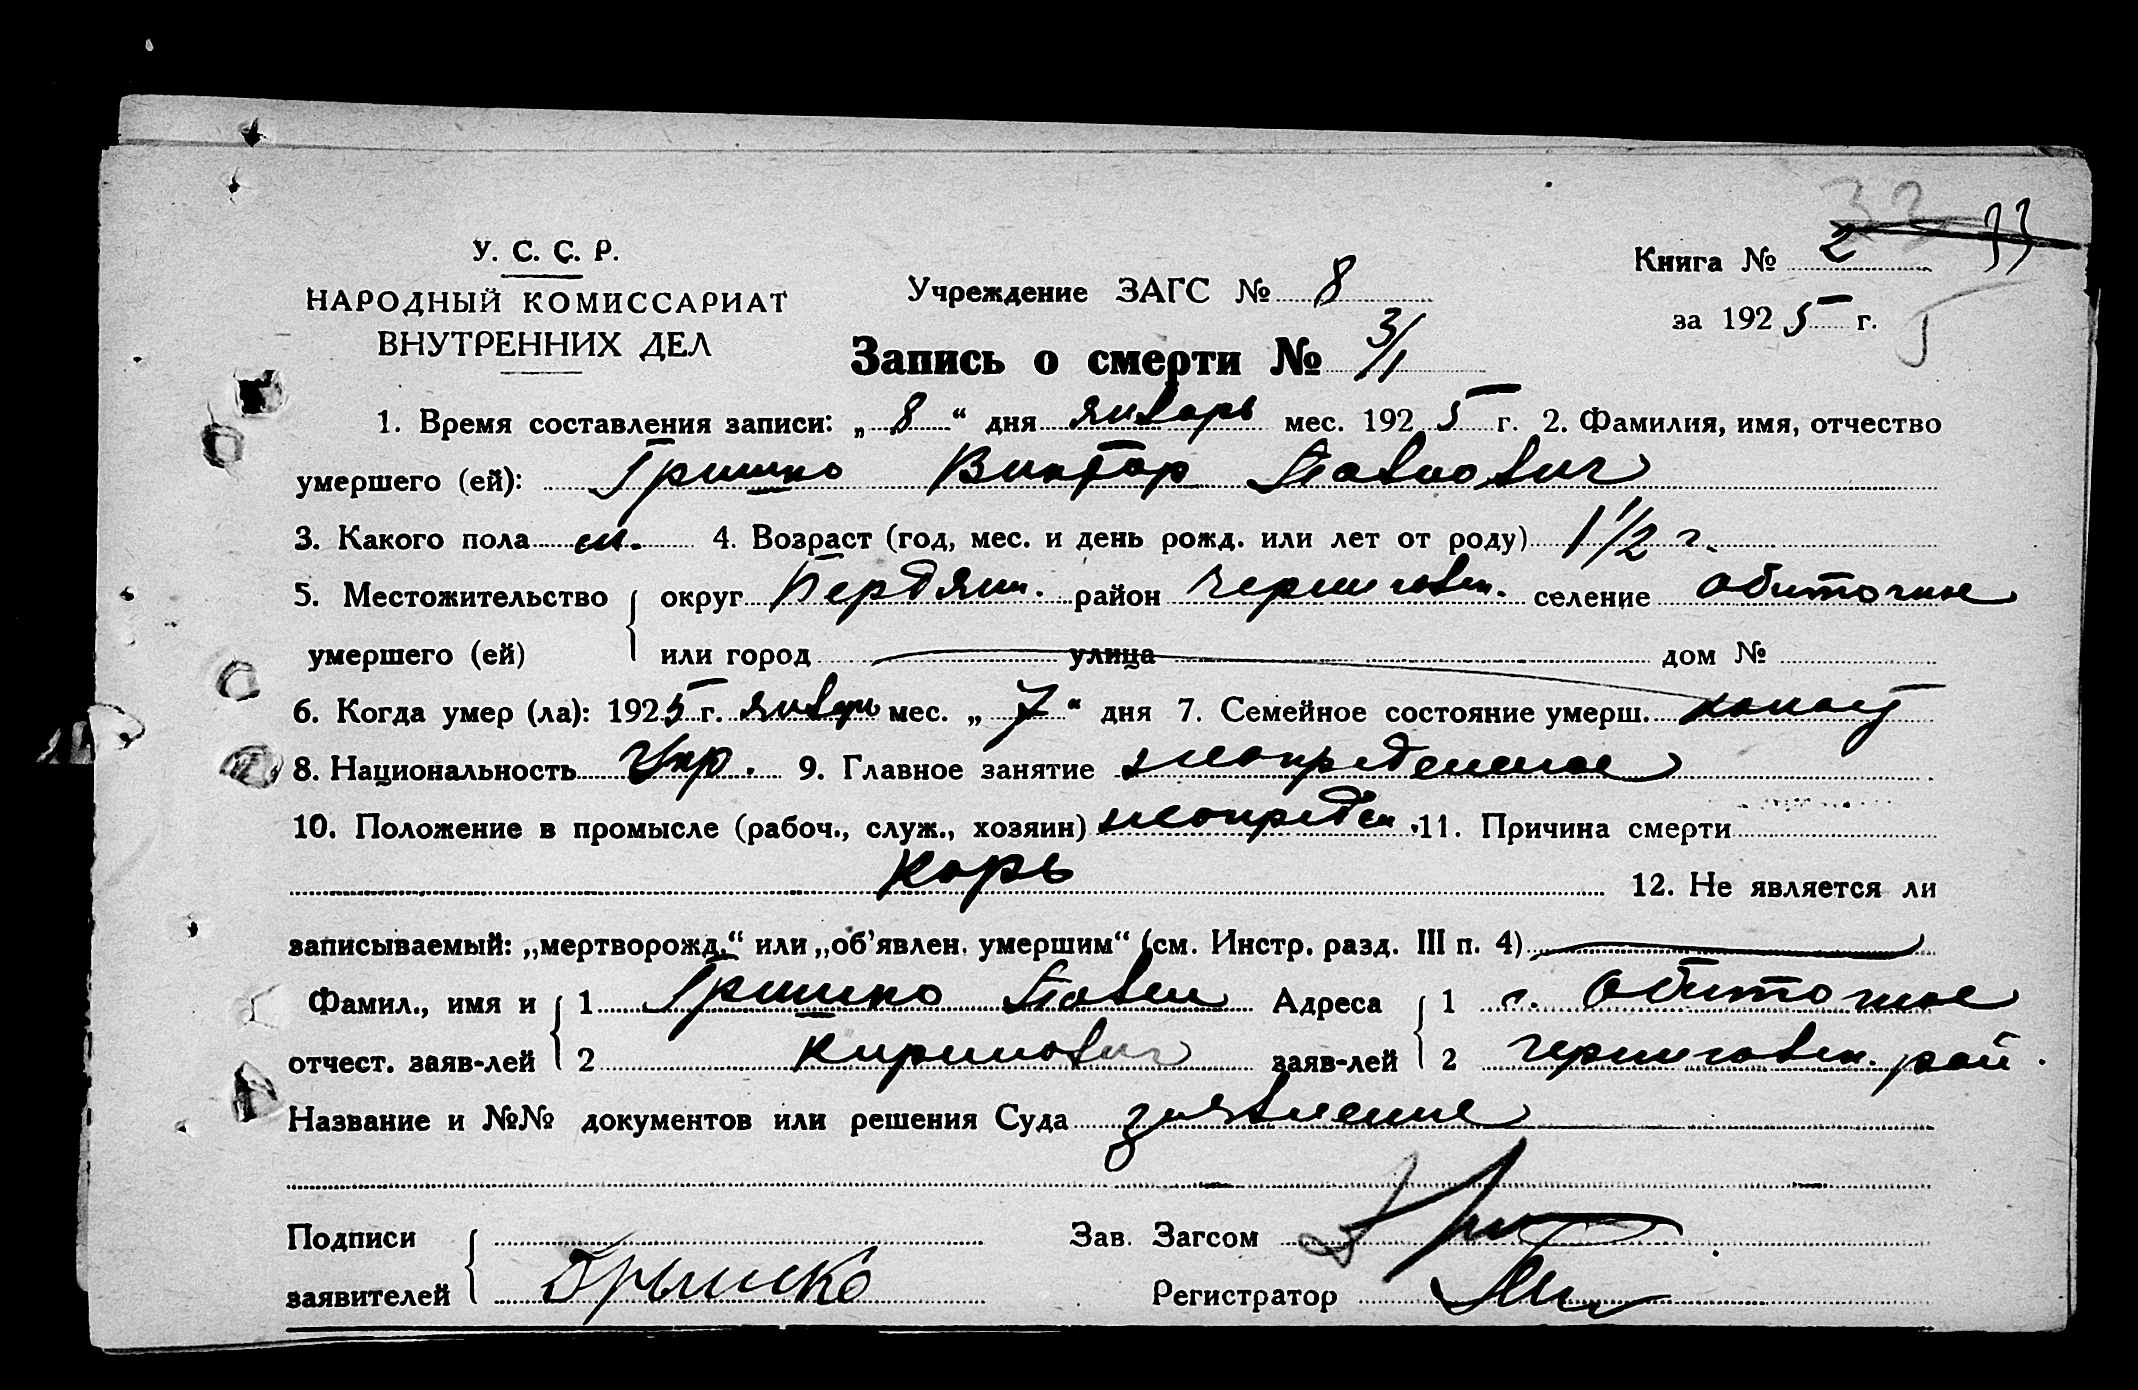 33 33
У. С. С. Р.
НАРОДНЫЙ КОМИССАРИАТ
ВНУТРЕННИХ ДЕЛ
Учреждение ЗАГС № 8
Книга № 2
за 1925 г. 5
Запись о смерти № 3/1
1. Время составления записи: „8“ дня январь мес. 1925 г. 2. Фамилия, имя, отчество
умершего (ей): Гришко Виктор Павлович
3. Какого пола м. 4. Возраст (год, мес. и день рожд. или лет от роду) 1 1/2 г.
5. Местожительство округ Бердян. район Черниговск. селение Обиточное
умершего (ей) или город улица дом №
6. Когда умер (ла): 1925 г. январь мес. „7“ дня 7. Семейное состояние умерш. холост
8. Национальность Укр. 9. Главное занятие неопределенное
10. Положение в промысле (рабоч., служ., хозяин) неопредел. 11. Причина смерти
Корь 12. Не является ли
записываемый: „мертворожд.“ или „об’явлен. умершим“ (см. Инстр. разд. III п. 4)
Фамил., имя и 1 Гришко Павел Адреса 1 с. Обиточное
отчест. заяв-лей 2 Кириллович заяв-лей 2 Черниговск. рай.
Название и №№ документов или решения Суда заявление
Подписи Зав. Загсом
заявителей Грышко Регистратор